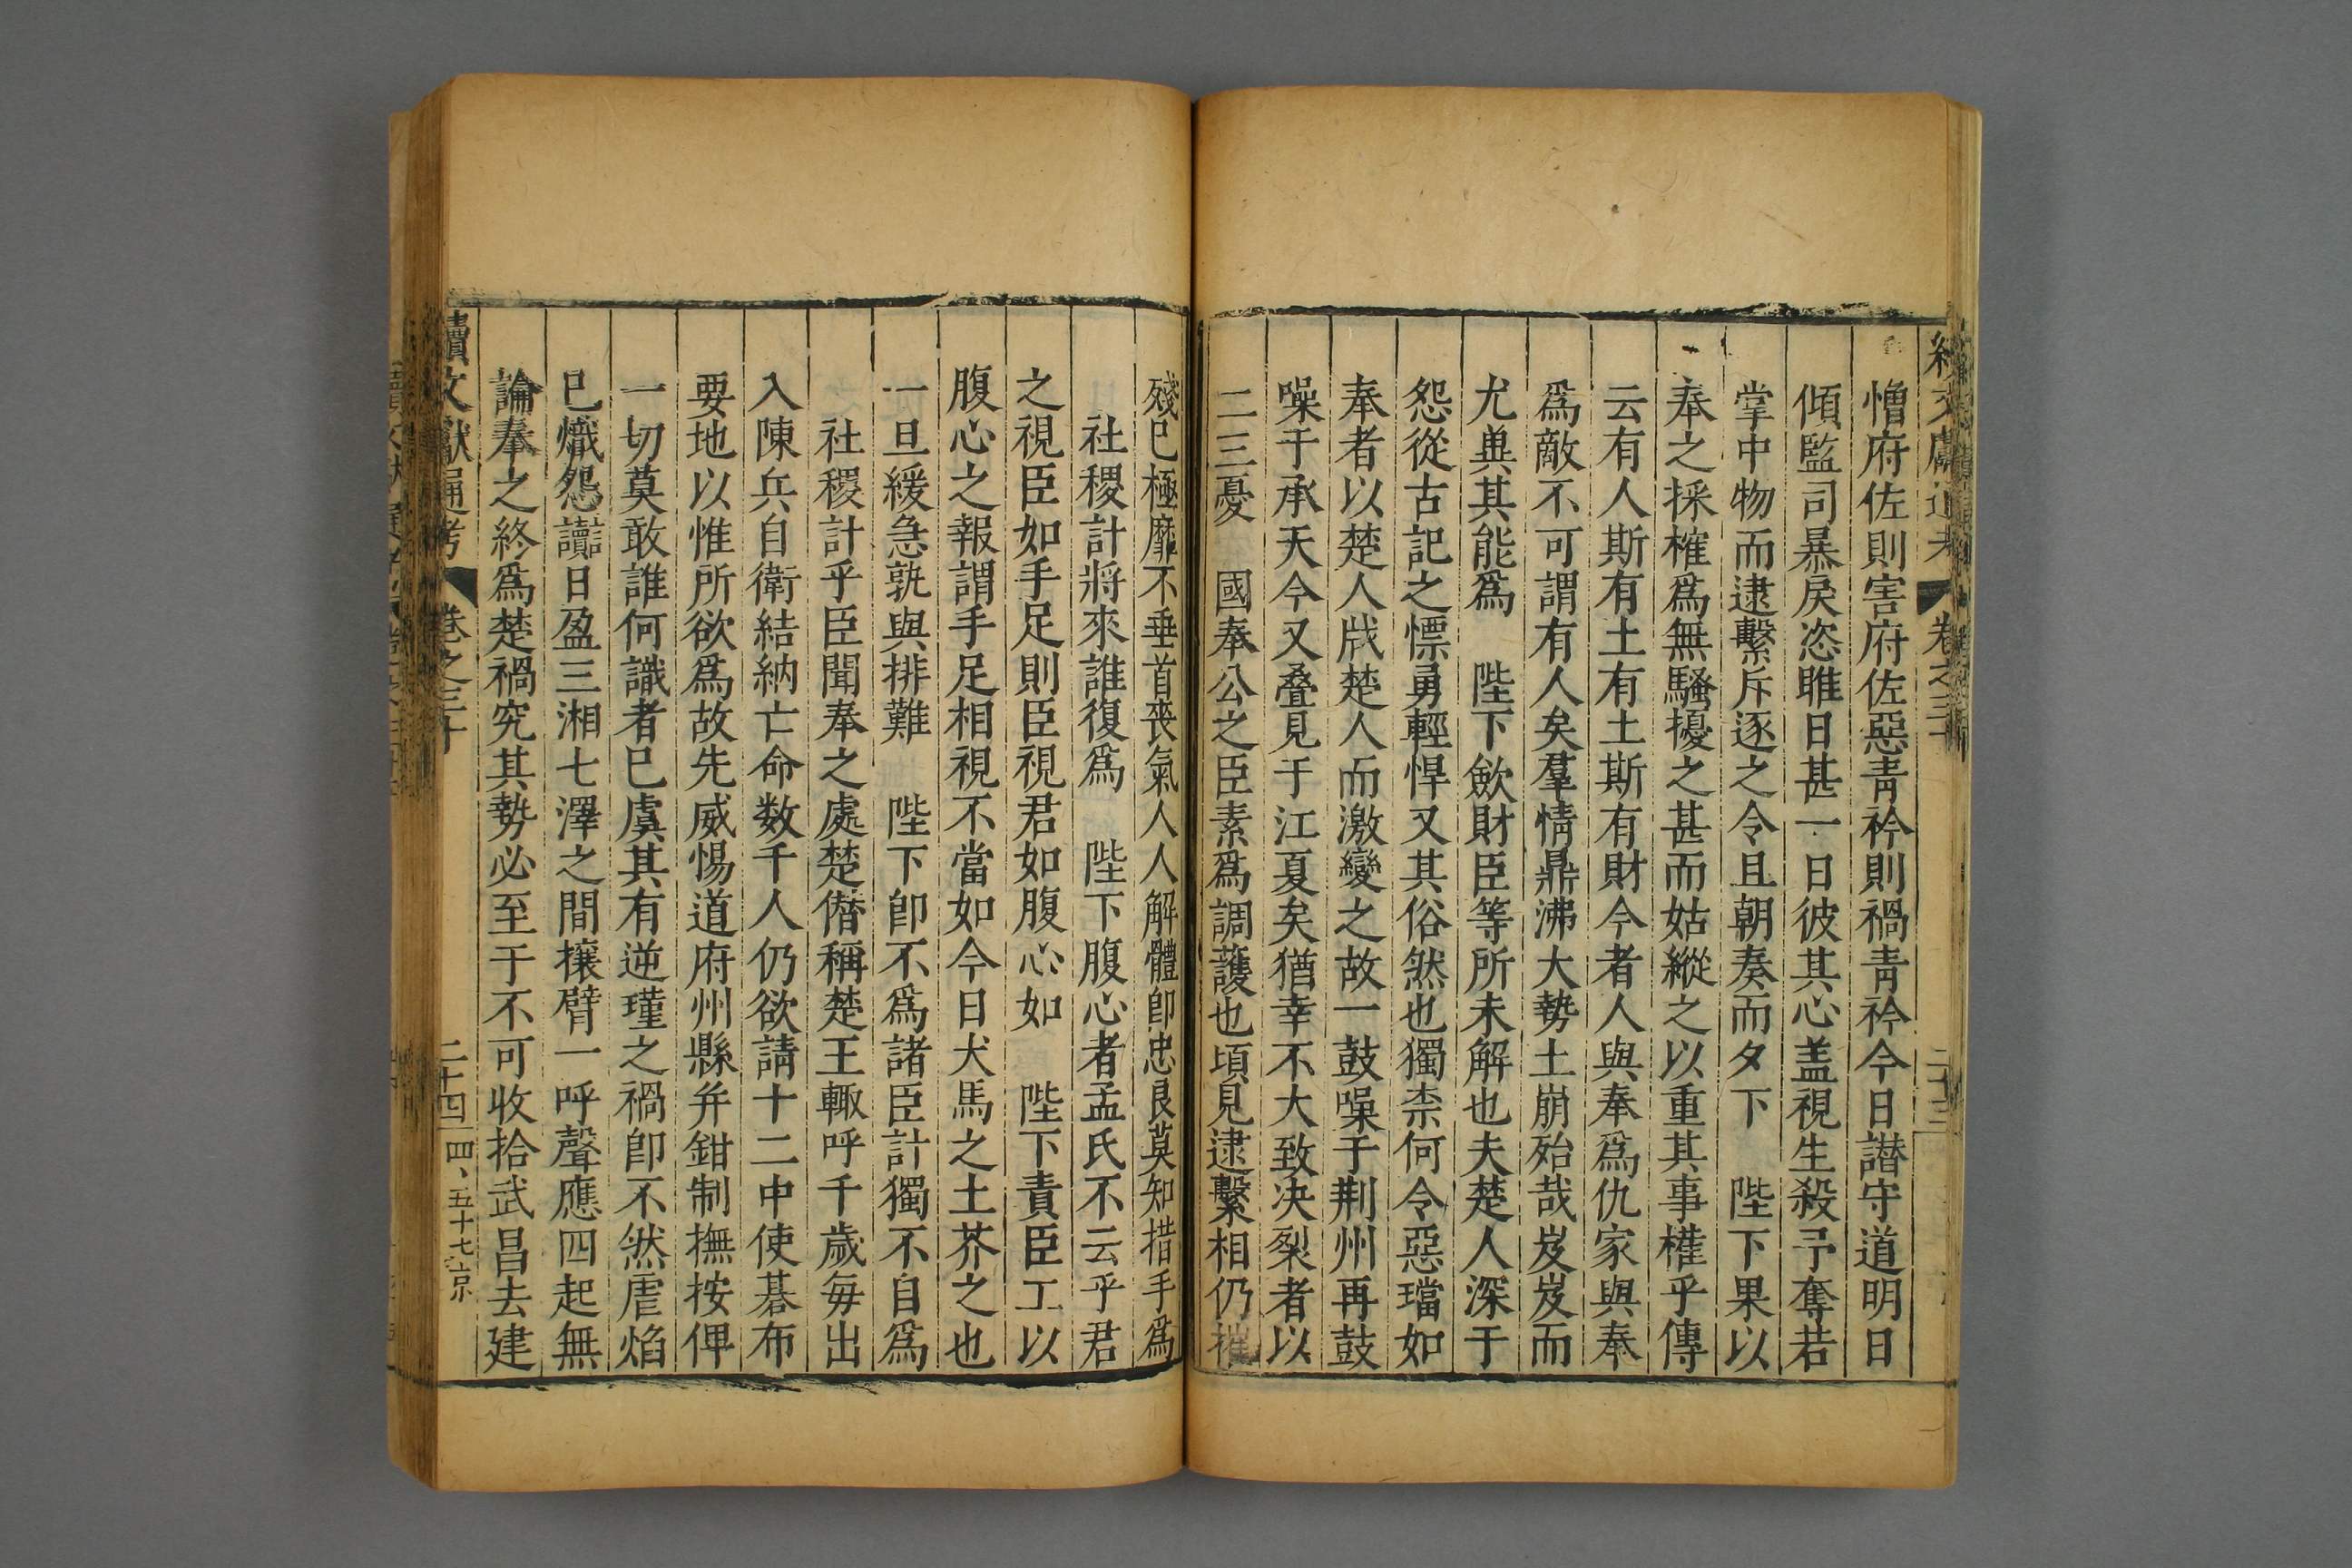 續文獻通考 卷之三十 二十三
憎府佐則害府佐惡青衿則禍青衿今日譖守道明日
傾監司暴戾恣睢日甚一日彼其心盖視生殺予奪若
掌中物而逮繫斥逐之令且朝奏而夕下 陛下果以
奉之採榷爲無騷擾之甚而姑縱之以重其事權乎傳
云有人斯有土有土斯有財今者人與奉爲仇家與奉
爲敵不可謂有人矣羣情鼎沸大勢土崩殆哉岌岌而
尤兾其能爲 陛下歛財臣等所未解也夫楚人深于
怨從古記之慓勇輕悍又其俗然也獨柰何令惡璫如
奉者以楚人戕楚人而激變之故一鼓噪于荆州再鼓
噪于承天今又叠見于江夏矣猶幸不大致决裂者以
二三憂 國奉公之臣素爲調護也頃見逮繫相仍摧
殘已極靡不垂首喪氣人人解體卽忠良莫知措手爲
社稷計將來誰復爲 陛下腹心者孟氏不云乎君
之視臣如手足則臣視君如腹心如 陛下責臣工以
腹心之報謂手足相視不當如今日犬馬之土芥之也
一旦緩急孰與排難 陛下卽不爲諸臣計獨不自爲
社稷計乎臣聞奉之處楚僭稱楚王輙呼千歲每出
入陳兵自衛結納亡命数千人仍欲請十二中使碁布
要地以惟所欲爲故先威惕道府州縣弁鉗制撫按俾
一切莫敢誰何識者已虞其有逆瑾之禍卽不然虐焰
已熾怨讟日盈三湘七澤之間攘臂一呼聲應四起無
論奉之終爲楚禍究其勢必至于不可收拾武昌去建
續文獻通考 卷之三十 二十四 四、五十七京